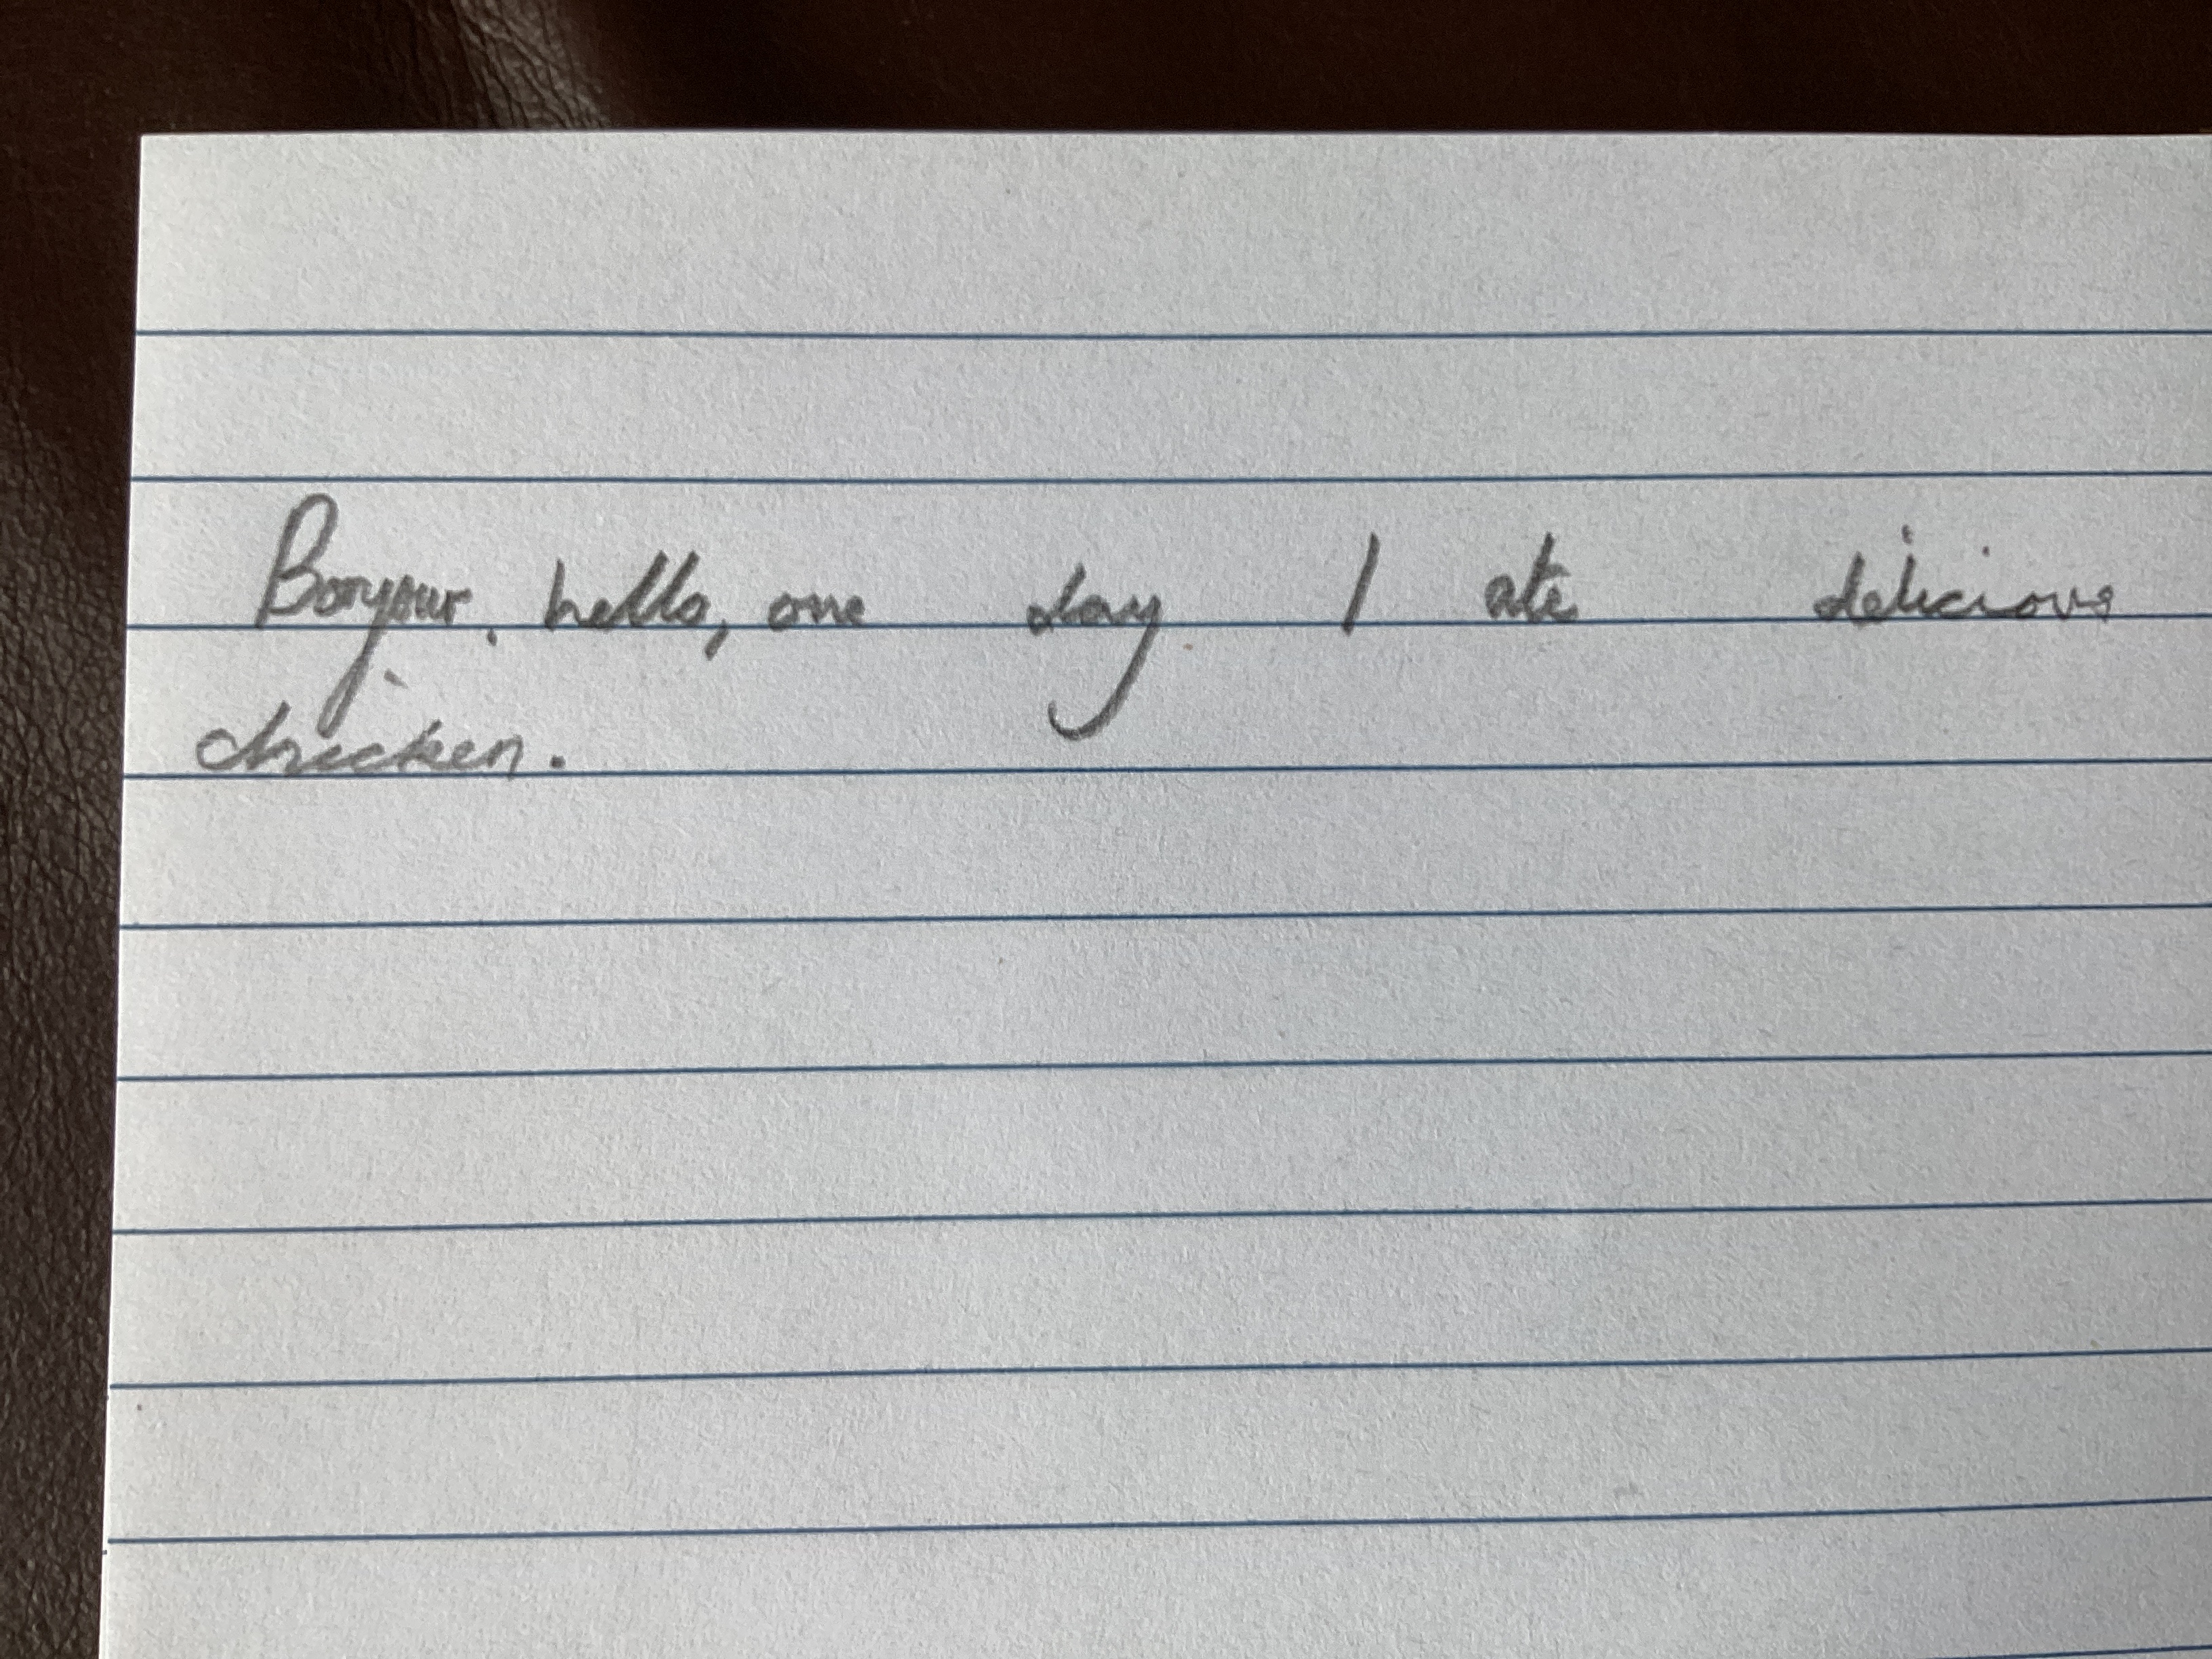 Bonjour, hello, one day I ate delicious
chicken.